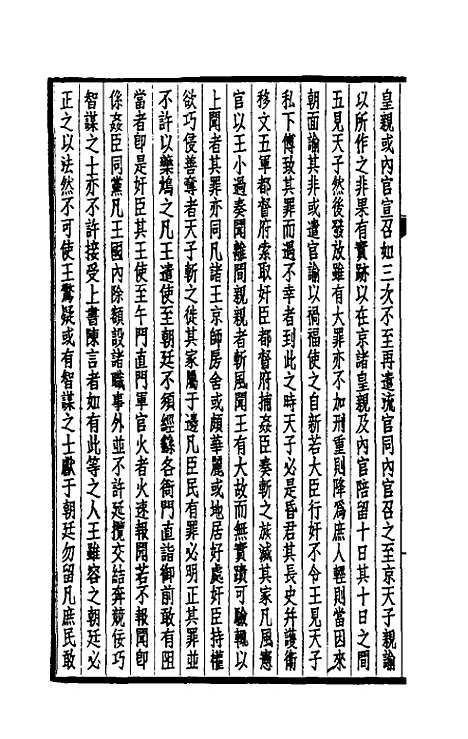 皇親或內官宣召如三次不至再遣流官同內官召之至京天子親諭
以所作之非果有實跡以在京諸皇親及內官陪留十日其十日之間
五見天子然後發放雖有大罪亦不加刑重則降爲庶人輕則當因來
朝面諭其非或遣官諭以禍福使之自新若大臣行奸不令王見天子
私下傅致其罪而遇不幸者到此之時天子必是昏君其長史幷護衛
移文五軍都督府索取奸臣都督府捕姦臣奏斬之族滅其家凡風憲
官以王小過奏聞離間親親者斬風聞王有大故而無實蹟可驗輒以
上聞者其罪亦同凡諸王京師房舍或頗華麗或地居好處奸臣持權
欲巧侵善奪者天子斬之徙其家屬于邊凡臣民有罪必明正其罪並
不許以藥鴆之凡王遣使至朝廷不須經繇各衙門直詣御前敢有阻
當者卽是奸臣其王使至午門直門軍官火者火速報聞若不報聞卽
係姦臣同黨凡王國內除額設諸職事外並不許延攬交結奔競佞巧
智謀之士亦不許接受上書陳言者如有此等之人王雖容之朝廷必
正之以法然不可使王驚疑或有智謀之士獻于朝廷勿留凡庶民敢